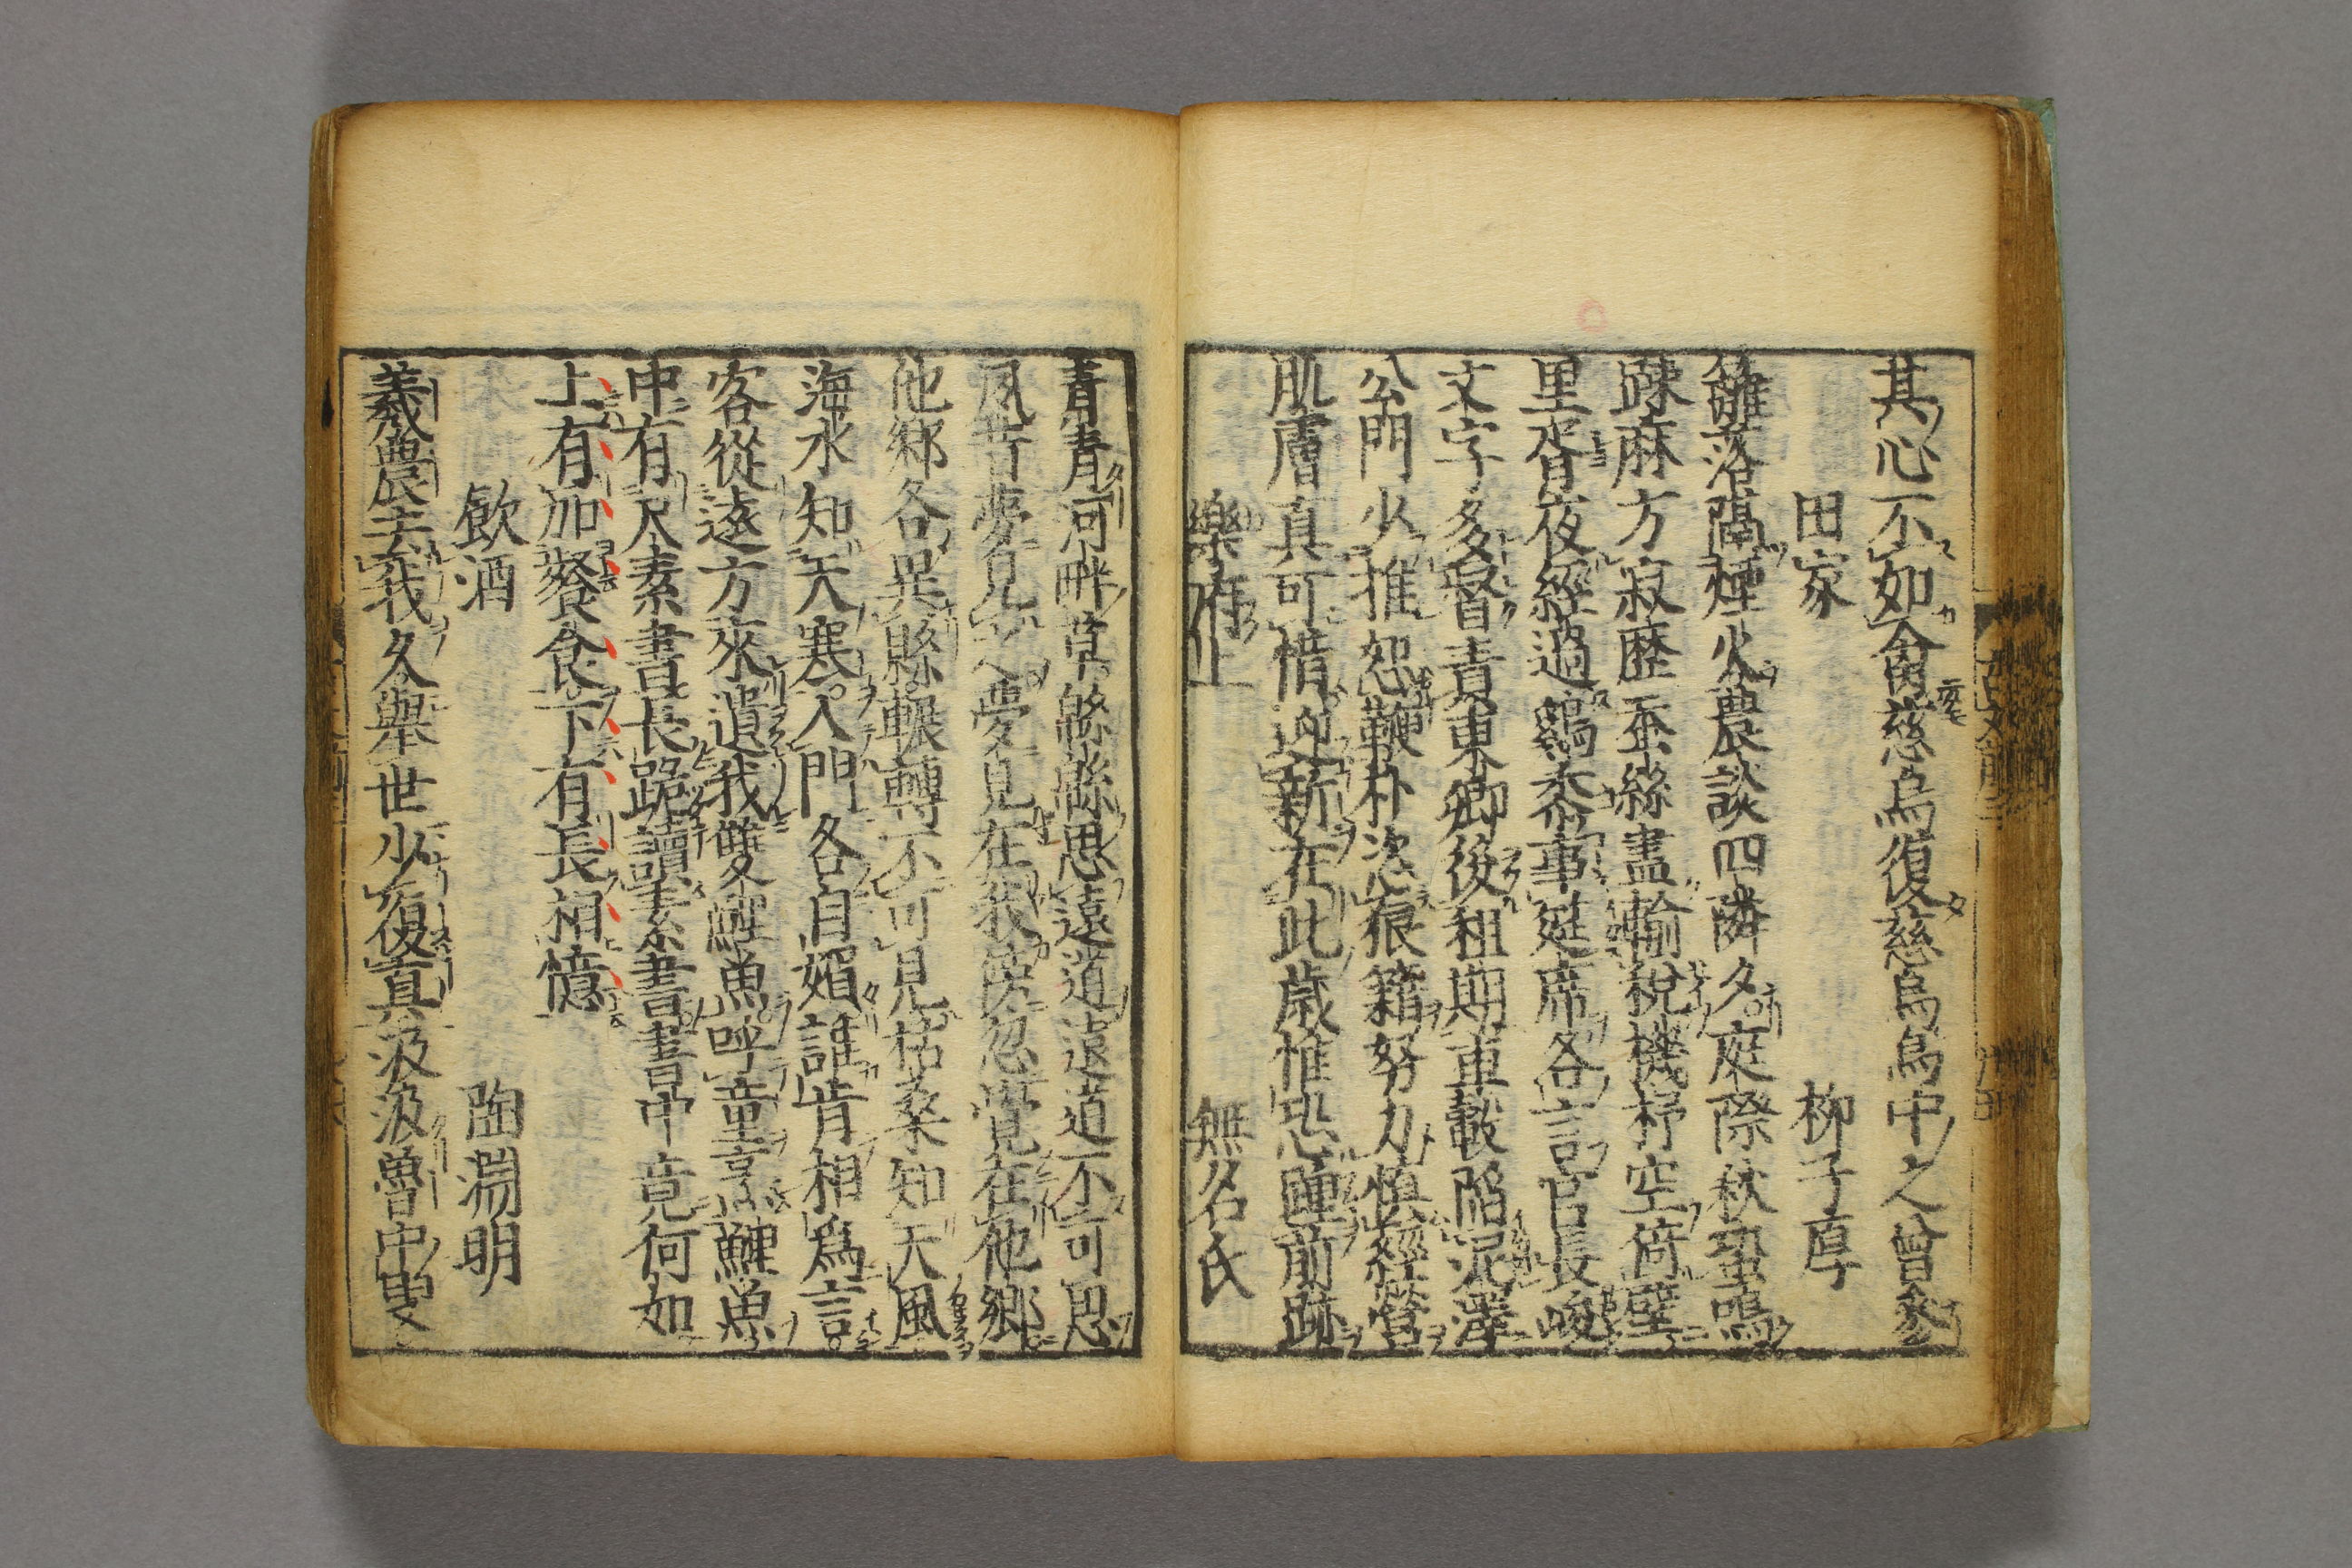 其心不如禽慈烏復慈烏烏中之曾參
田家 柳子厚
籬落隔煙火農談四隣夕庭際秋蛩鳴
踈麻方寂歷蚕絲盡輸稅機杼空倚壁
里胥夜經過鷄黍事筵席各言官長峻
文字多督責東鄉後租期車轂陷泥澤
公門少推恕鞭朴恣狼籍努力慎經營
肌膚真可惜迎新在此歲惟恐踵前跡
樂府上 無名氏
青青河畔草緜緜思遠道遠道不可思
夙昔夢見之夢見在我傍忽覺在他鄉
他鄉各異縣輾轉不可見枯桑知天風
海水知天寒入門各自媚誰肯相爲言
客從遠方來遺我雙鯉魚呼童烹鯉魚
中有尺素書長跪讀素書書中竟何如
上有加餐食下有長相憶
飲酒 陶淵明
羲農去我久舉世少復真汲汲魯中叟